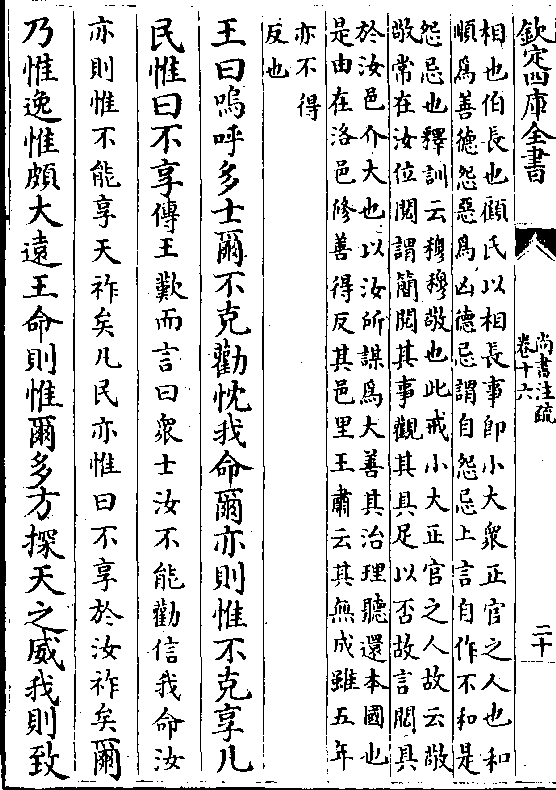 欽定四庫全書
尚書注疏
卷十六
二十
相也伯長也顧氏以相長事即小大衆正官之人也和
順為善德怨惡為凶德忌謂自怨忌上言自作不和是
怨忌也釋訓云穆穆敬也此戒小大正官之人故云敬
敬常在汝位閱謂簡閱其事觀其具足以否故言閱具
於汝邑介大也以汝所謀為大善其治理聽還本國也
是由在洛邑修善得反其邑里王肅云其無成雖五年
亦不得
反也
王曰嗚呼多士爾不克勸忱我命爾亦則惟不克享凡
民惟曰不享傳王歎而言曰衆士汝不能勸信我命汝
亦則惟不能享天祚矣凡民亦惟曰不享於汝祚矣爾
乃惟逸惟頗大遠王命則惟爾多方探天之威我則致